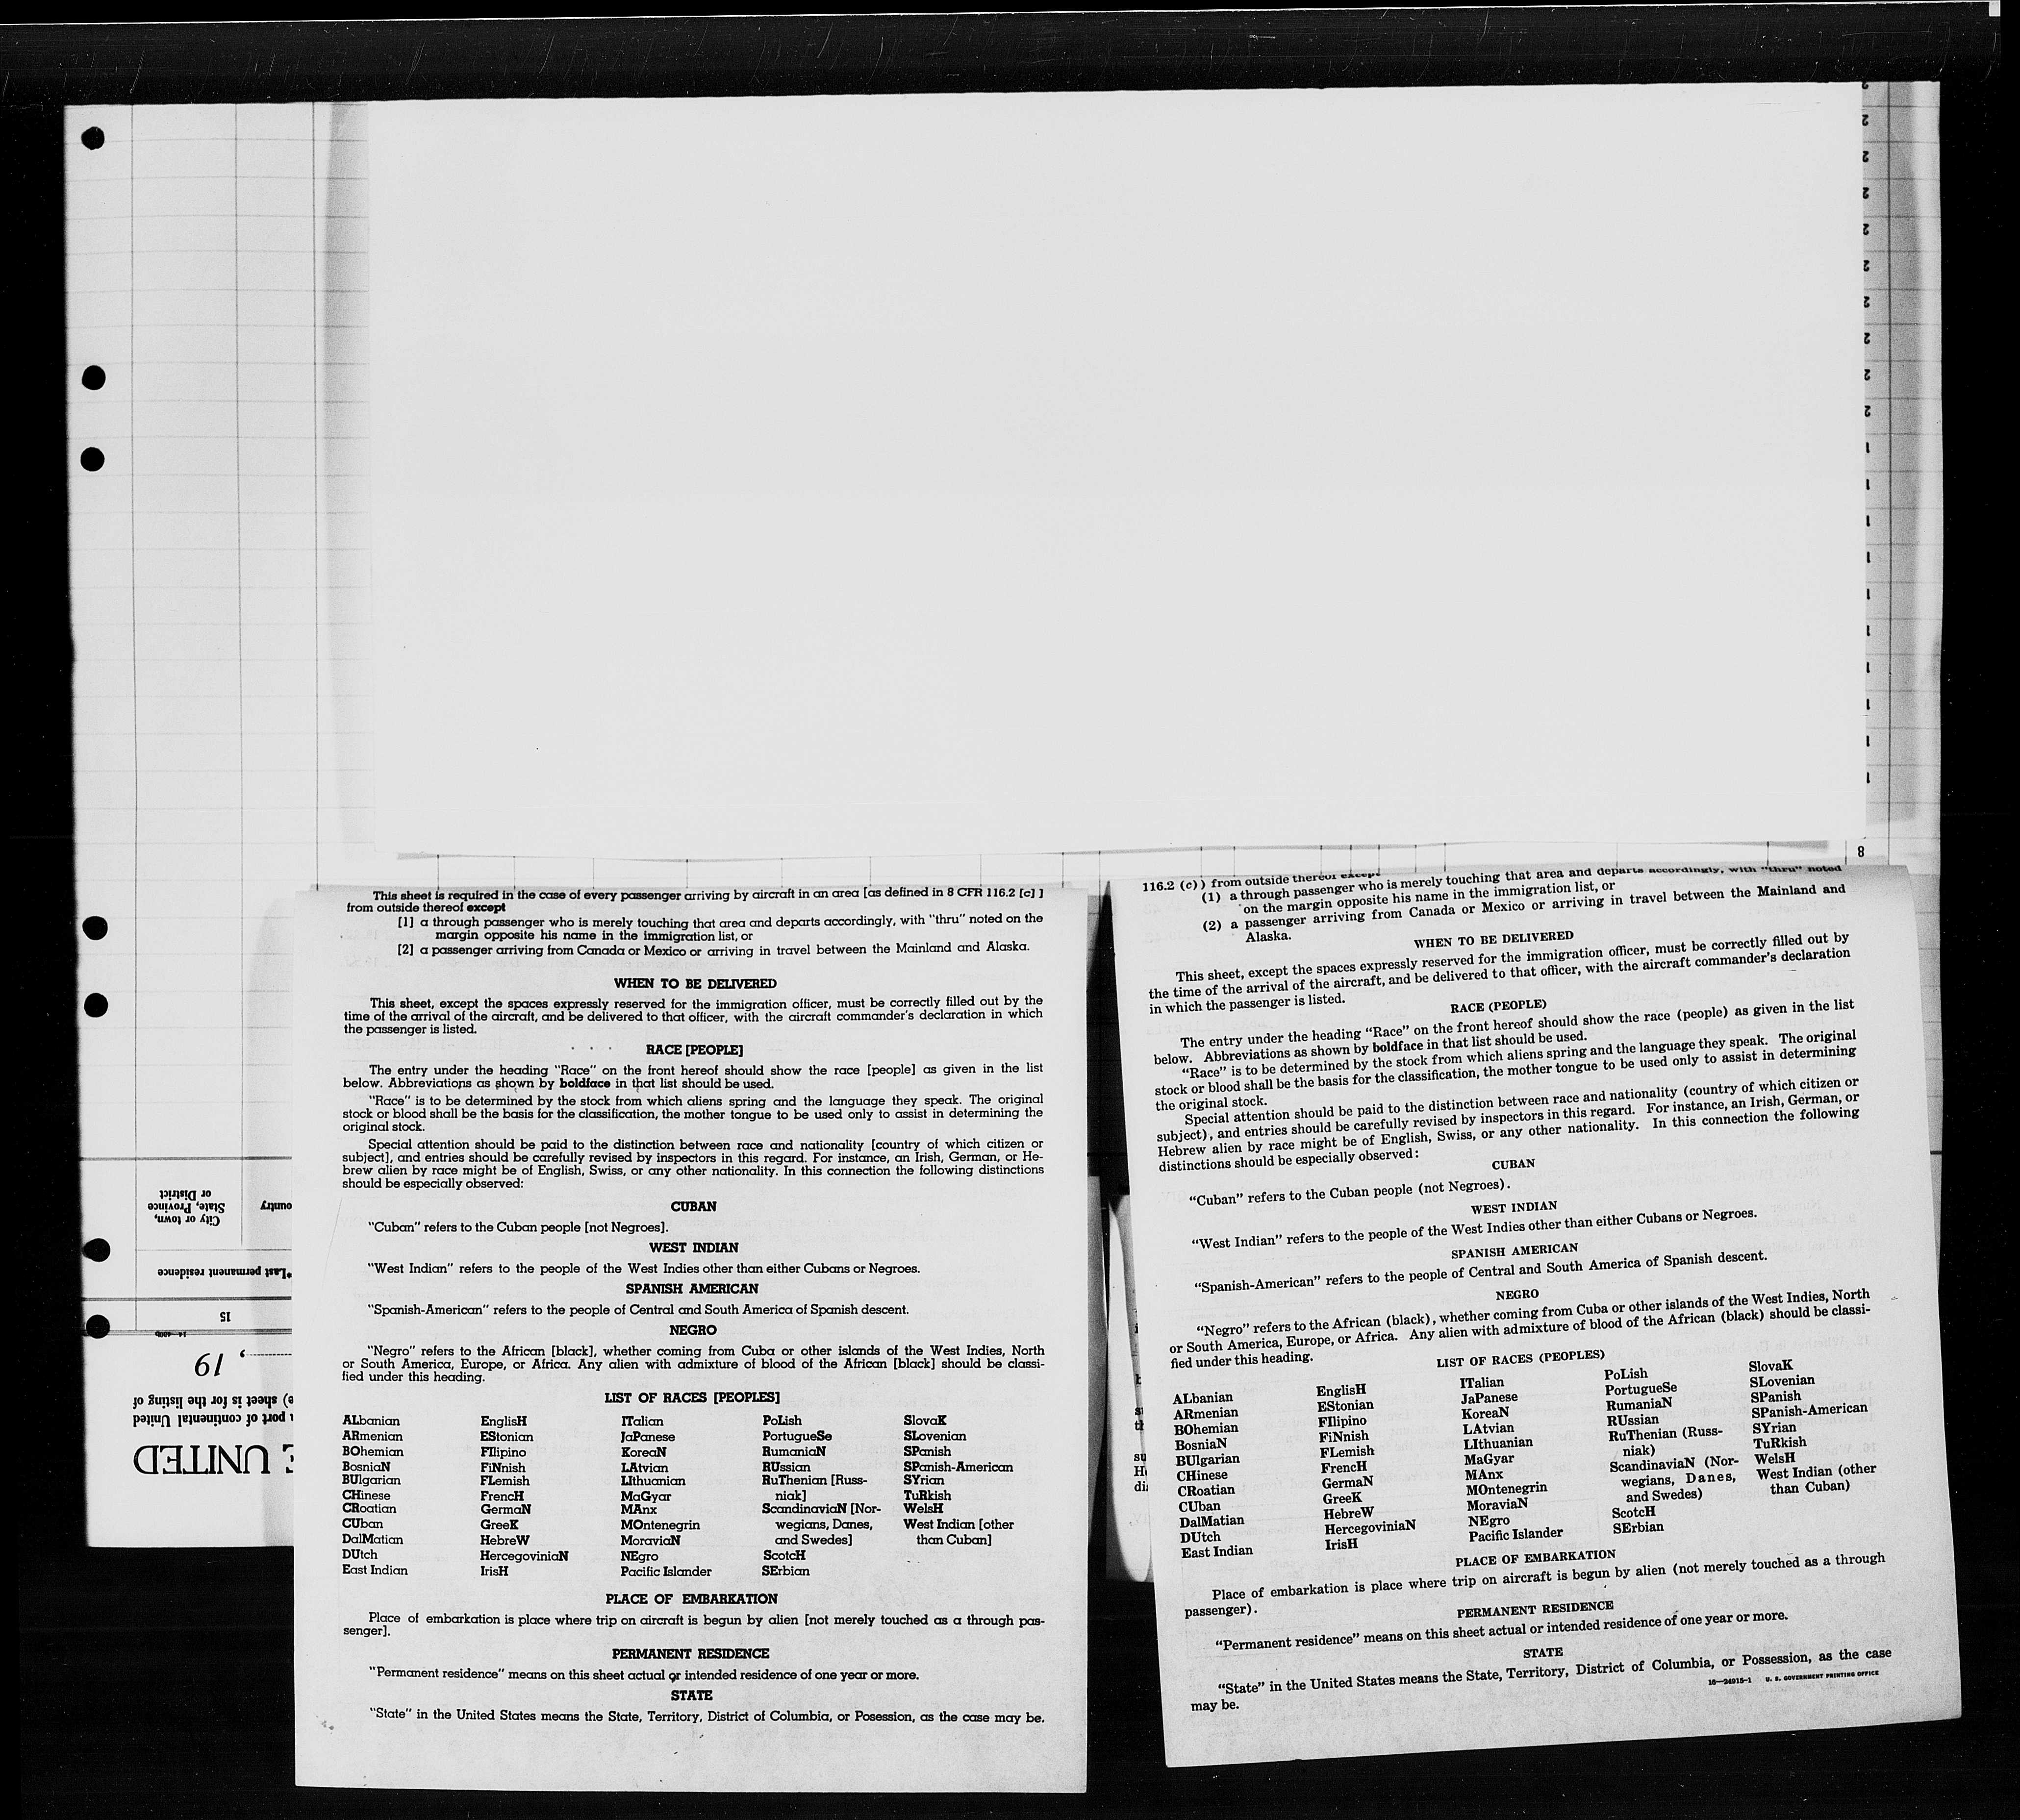 This sheet is required in the case of every passenger arriving by aircraft in an area [as defined in 8 CFR 116.2 [c] ]
from outside thereof except
[1] a through passenger who is merely touching that area and departs accordingly, with "thru" noted on the
margin opposite his name in the immigration list, or
[2] a passenger arriving from Canada or Mexico or arriving in travel between the Mainland and Alaska.
WHEN TO BE DELIVERED
This sheet, except the spaces expressly reserved for the immigration officer, must be correctly filled out by the
time of the arrival of the aircraft, and be delivered to that officer, with the aircraft commander's declaration in which
the passenger is listed.
RACE [PEOPLE]
The entry under the heading "Race" on the front hereof should show the race [people] as given in the list
below. Abbreviations as shown by boldface in that list should be used.
"Race" is to be determined by the stock from which aliens spring and the language they speak. The original
stock or blood shall be the basis for the classification, the mother tongue to be used only to assist in determining the
original stock.
Special attention should be paid to the distinction between race and nationality [country of which citizen or
subject], and entries should be carefully revised by inspectors in this regard. For instance, an Irish, German, or He-
brew alien by race might be of English, Swiss, or any other nationality. In this connection the following distinctions
should be especially observed:
CUBAN
"Cuban" refers to the Cuban people [not Negroes].
WEST INDIAN
"West Indian" refers to the people of the West Indies other than either Cubans or Negroes.
SPANISH AMERICAN
"Spanish-American" refers to the people of Central and South America of Spanish descent.
NEGRO
"Negro" refers to the African [black], whether coming from Cuba or other islands of the West Indies, North
or South America, Europe, or Africa. Any alien with admixture of blood of the African [black] should be classi-
fied under this heading.
LIST OF RACES [PEOPLES]
ALbanian EnglisH ITalian PoLish SlovaK
ARmenian EStonian JaPanese PortugueSe SLovenian
BOhemian FIlipino KoreaN RumaniaN SPanish
BosniaN FiNnish LAtvian RUssian SPanish-American
BUlgarian FLemish LIthuanian RuThenian [Russ- SYrian
CHinese FrencH MaGyar niak] TuRkish
CRoatian GermaN MAnx ScandinaviaN [Nor- WelsH
CUban GreeK MOntenegrin wegians, Danes, West Indian [other
DalMatian HebreW MoraviaN and Swedes] than Cuban]
DUtch HercegoviniaN NEgro ScotcH
East Indian IrisH Pacific Islander SErbian
PLACE OF EMBARKATION
Place of embarkation is place where trip on aircraft is begun by alien [not merely touched as a through pas-
senger].
PERMANENT RESIDENCE
"Permanent residence" means on this sheet actual or intended residence of one year or more.
STATE
"State" in the United States means the State, Territory, District of Columbia, or Posession, as the case may be.
116.2 (c)) from outside thereof except
(1) a through passenger who is merely touching that area and departs accordingly, with "thru" noted
on the margin opposite his name in the immigration list, or
(2) a passenger arriving from Canada or Mexico or arriving in travel between the Mainland and
Alaska.
WHEN TO BE DELIVERED
This sheet, except the spaces expressly reserved for the immigration officer, must be correctly filled out by
the time of the arrival of the aircraft, and be delivered to that officer, with the aircraft commander's declaration
in which the passenger is listed.
RACE (PEOPLE)
The entry under the heading "Race" on the front hereof should show the race (people) as given in the list
below. Abbreviations as shown by boldface in that list should be used.
"Race" is to be determined by the stock from which aliens spring and the language they speak. The original
stock or blood shall be the basis for the classification, the mother tongue to be used only to assist in determining
the original stock.
Special attention should be paid to the distinction between race and nationality (country of which citizen or
subject), and entries should be carefully revised by inspectors in this regard. For instance, an Irish, German, or
Hebrew alien by race might be of English, Swiss, or any other nationality. In this connection the following
distinctions should be especially observed:
CUBAN
"Cuban" refers to the Cuban people (not Negroes).
WEST INDIAN
"West Indian" refers to the people of the West Indies other than either Cubans or Negroes.
SPANISH AMERICAN
"Spanish-American" refers to the people of Central and South America of Spanish descent.
NEGRO
"Negro" refers to the African (black), whether coming from Cuba or other islands of the West Indies, North
or South America, Europe, or Africa. Any alien with admixture of blood of the African (black) should be classi-
fied under this heading.
LIST OF RACES (PEOPLES)
ALbanian EnglisH ITalian PoLish SlovaK
ARmenian EStonian JaPanese PortugueSe SLovenian
BOhemian FIlipino KoreaN RumaniaN SPanish
BosniaN FiNnish LAtvian RUssian SPanish-American
BUlgarian FLemish LIthuanian RuThenian (Russ- SYrian
CHinese FrencH MaGyar niak) TuRkish
CRoatian GermaN MAnx ScandinaviaN (Nor- WelsH
CUban GreeK MOntenegrin wegians, Danes, West Indian (other
DalMatian HebreW MoraviaN and Swedes) than Cuban)
DUtch HercegoviniaN NEgro ScotcH
East Indian IrisH Pacific Islander SErbian
PLACE OF EMBARKATION
Place of embarkation is place where trip on aircraft is begun by alien (not merely touched as a through
passenger).
PERMANENT RESIDENCE
"Permanent residence" means on this sheet actual or intended residence of one year or more.
STATE
"State" in the United States means the State, Territory, District of Columbia, or Possession, as the case
may be.
16—24915-1 U. S. GOVERNMENT PRINTING OFFICE
8
E UNITED
a port of continental United
e) sheet is for the listing of
, 19
15
*Last permanent residence
City or town,
State, Province
or District
ountry